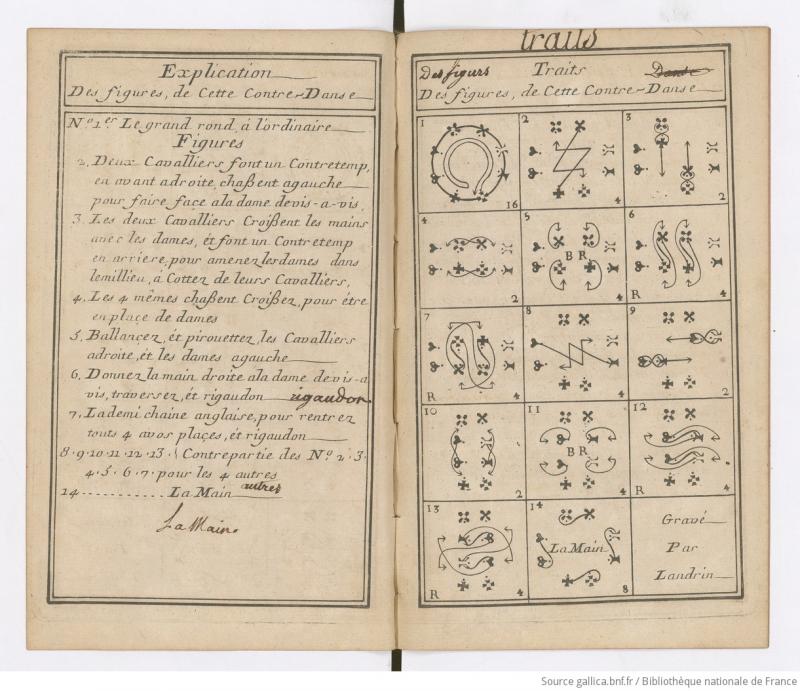 Explication
Des figures, de Cette Contre-Danse
No. 1er Le grand rond, à l'ordinaire
Figures
2, Deux Cavalliers font un Contretemp,
en avant adroite, chaßent agauche
pour faire face ala dame devis-a-vis,
3. Les deux Cavalliers Croißent les mains
avec les dames, ét font un Contretemp
en arriere, pour amener les dames dans
lemillieu, à Cottez de leurs Cavalliers,
4, Les 4 mêmes chaßent Croißez, pour étre
en plaçe de dames
5, Ballançez, ét pirouettez, les Cavalliers
adroite, ét les dames agauche
6, Donnez la main droite ala dame devis-a
vis, traversez, ét rigaudon rigaudon.
7, La demi chaine anglaise, pour rentrez
touts 4 avos plaçes, ét rigaudon
8.9.10.11.12.13.\ Contrepartie des No. 2.3.
4.5.6.7. pour les 4 autres
14........... La Main autres
La Main.
traits
Des figurs Traits Danse
Des figures, de Cette Contre-Danse
1 2 3
16 4 2
4 5 6
B R
2 4 R 4
7 8 9
R 4 4 2
10 11 12
B R
2 4 R 4
13 14
La Main
R 4 8
Gravé
Par
Landrin
Source gallica.bnf.fr / Bibliothèque nationale de France